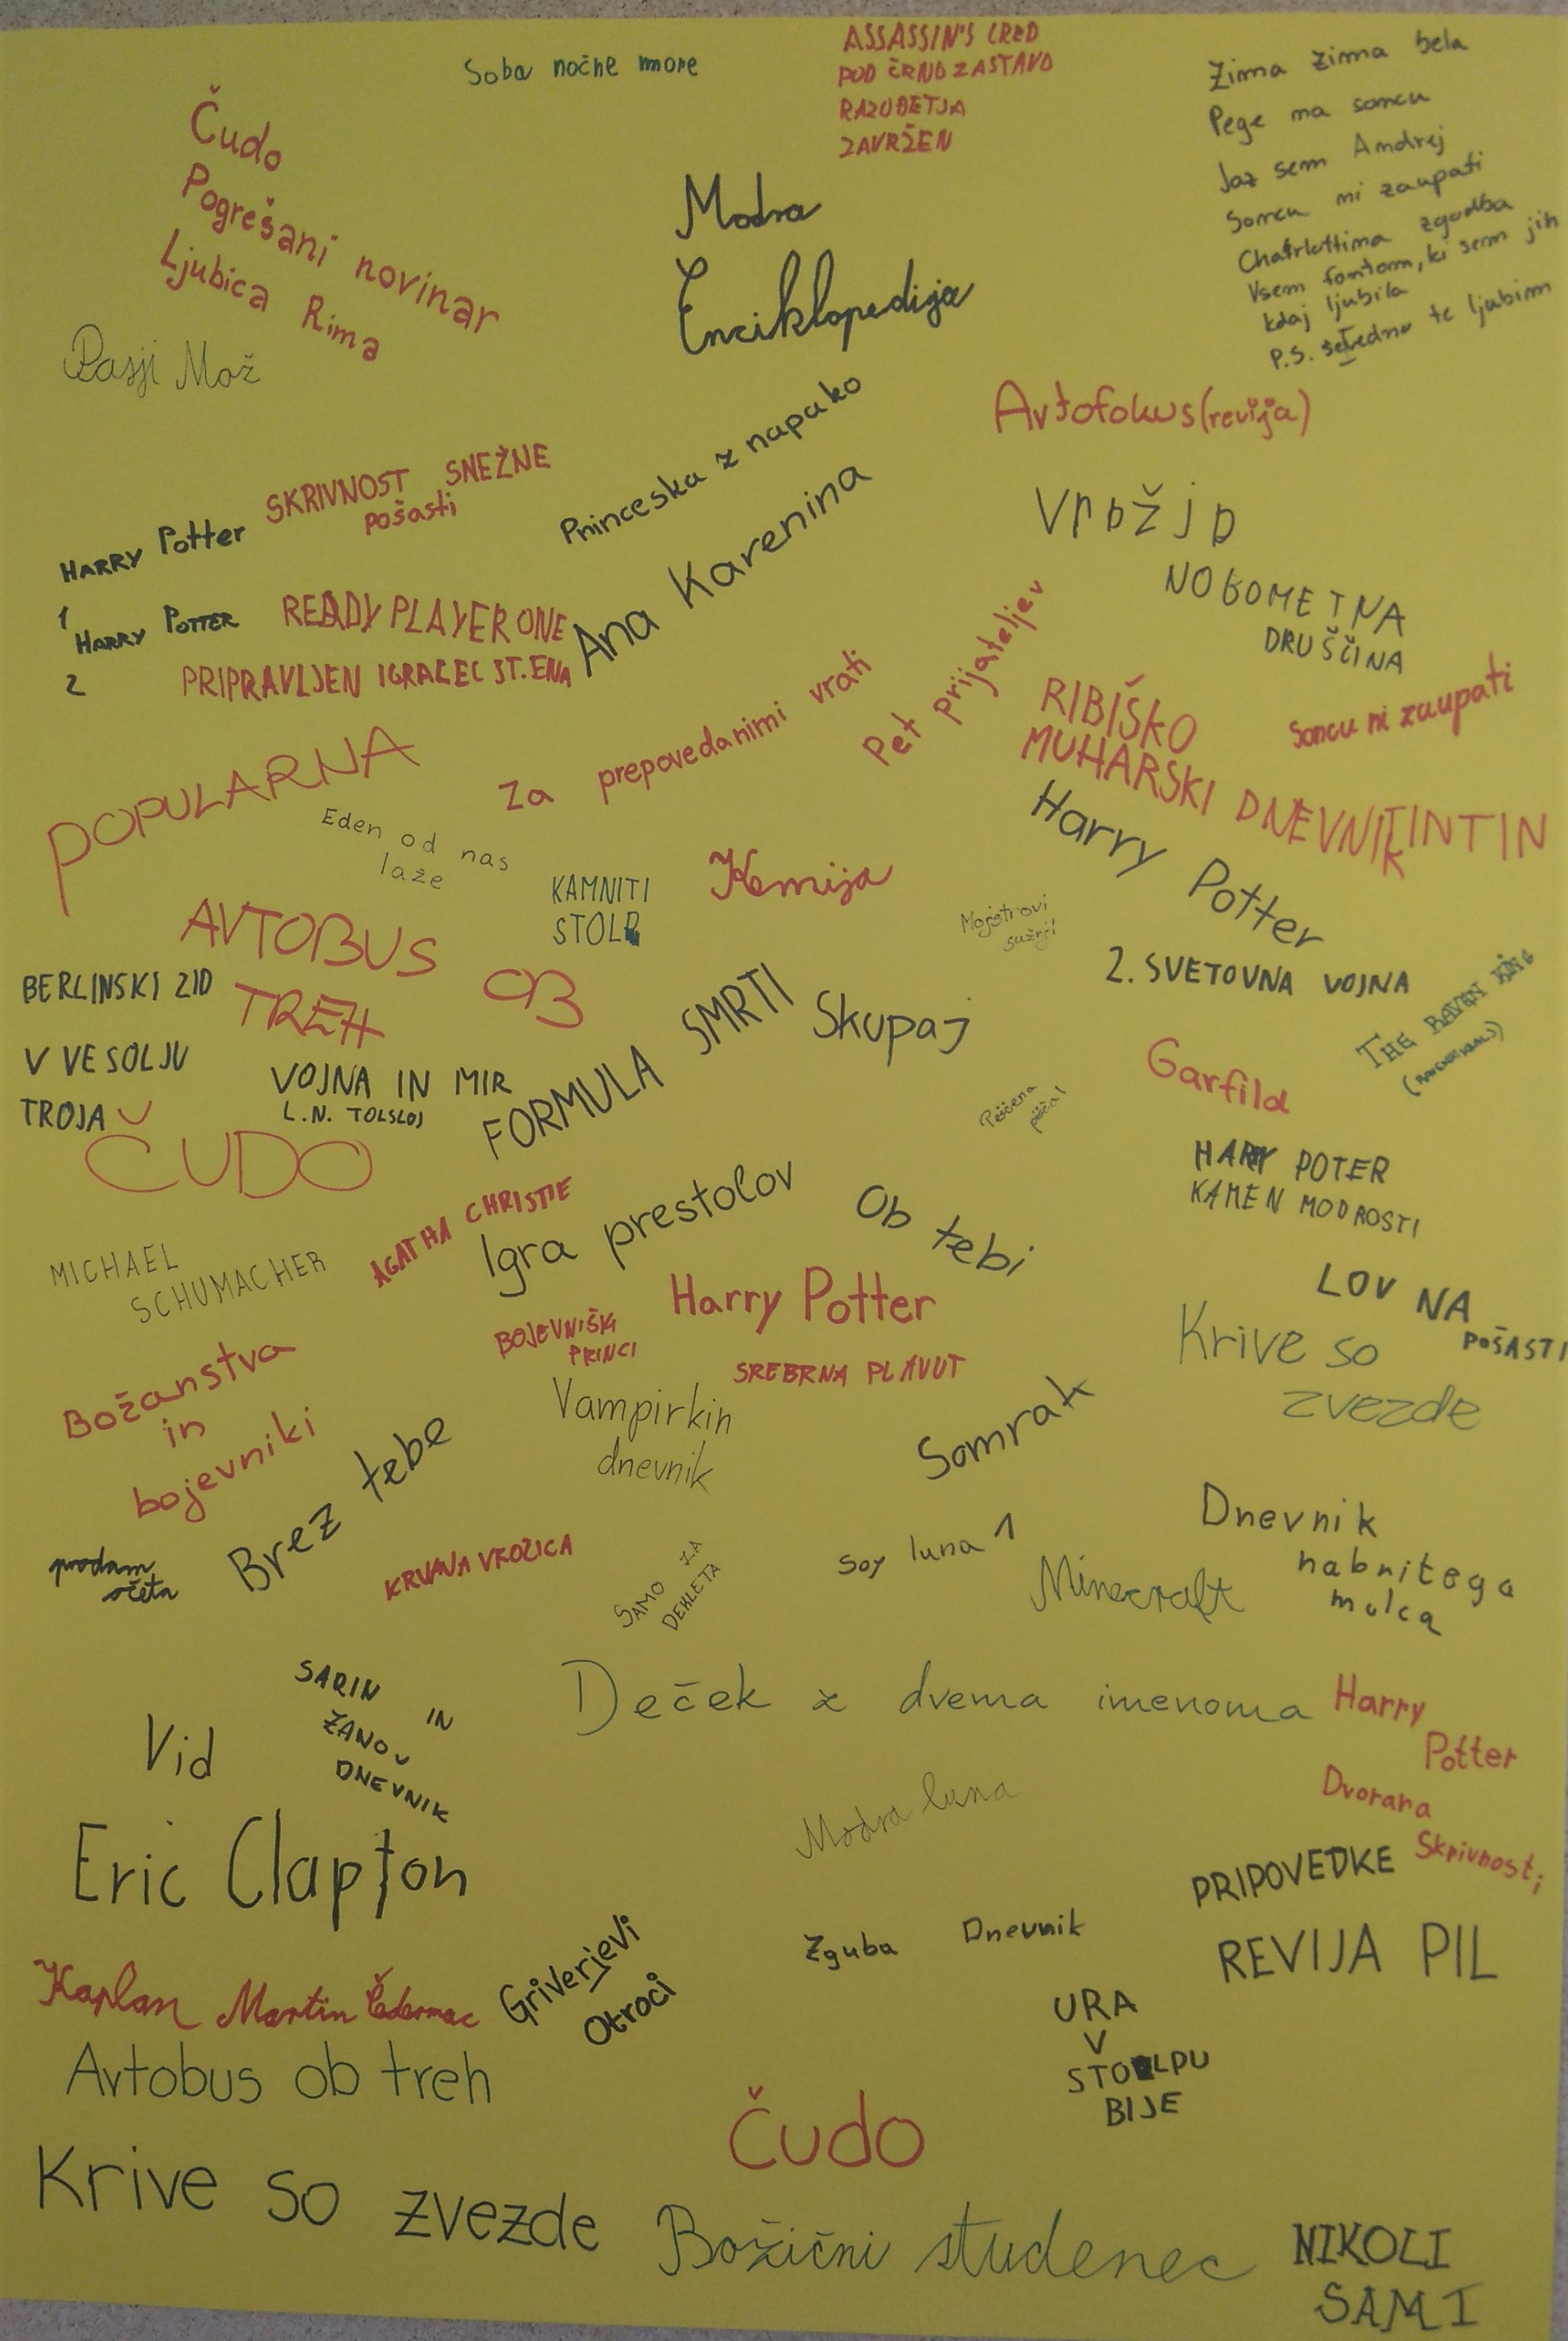 Soba nočne more
ASSASSIN'S CRED
POD ČRNO ZASTAVO
RAZODETJA
ZAVRŽEN
Zima zima bela
Pege na soncu
Jaz sem Andrej
Soncu ni zaupati
zgodba
Vsem fantom, ki sem jih
kdaj ljubila
P.S. še vedno te ljubim
Čudo
Pogrešani novinar
Ljubica Rima
Modra
Enciklopedija
Pasji Mož
Avtofokus (revija)
Princeska z napako
SKRIVNOST SNEŽNE
pošasti
HARRY Potter
1
Ana Karenina
NOGOMETNA
DRUŠČINA
HARRY POTTER
2
READY PLAYER ONE
PRIPRAVLJEN IGRALEC ŠT. ENA
Za prepovedanimi vrati
Pet prijateljev
RIBIŠKO
MUHARSKI DNEVNIK
Soncu ni zaupati
TINTIN
POPULARNA
Eden od nas
laže
KAMNITI
STOLP
Kemija
Harry Potter
Mojstrovi
sužnji
AVTOBUS
OB
TREH
BERLINSKI ZID
V VESOLJU
TROJA
VOJNA IN MIR
L.N. TOLSLOJ
FORMULA SMRTI
Skupaj
2. SVETOVNA VOJNA
THE RAVEN KING
Garfild
Peščena
piščal
ČUDO
HARY POTER
KAMEN MODROSTI
MICHAEL
SCHUMACHER
AGATHA CHRISTIE
Igra prestolov
Ob tebi
Harry Potter
LOV NA
POŠASTI
BOJEVNIŠKI
PRINCI
SREBRNA PLAVUT
Krive so
zvezde
Božanstva
in
bojevniki
Vampirkin
dnevnik
Somrak
Brez tebe
prodam
očeta
KRVAVA VROZICA
SAMO ZA
DEKLETA
Soy luna 1
Minecraft
Dnevnik
nabritega
mulca
SARIN IN
ŽANOV
DNEVNIK
Vid
Deček z dvema imenoma
Harry
Potter
Dvorana
Skrivnosti
Modra luna
Eric Clapton
PRIPOVEDKE
Zguba Dnevnik
REVIJA PIL
Kaplan Martin Čedermac
Griverjevi
Otroci
URA
V
STOLPU
BIJE
Avtobus ob treh
Čudo
Krive so zvezde
Božični studenec
NIKOLI
SAMI